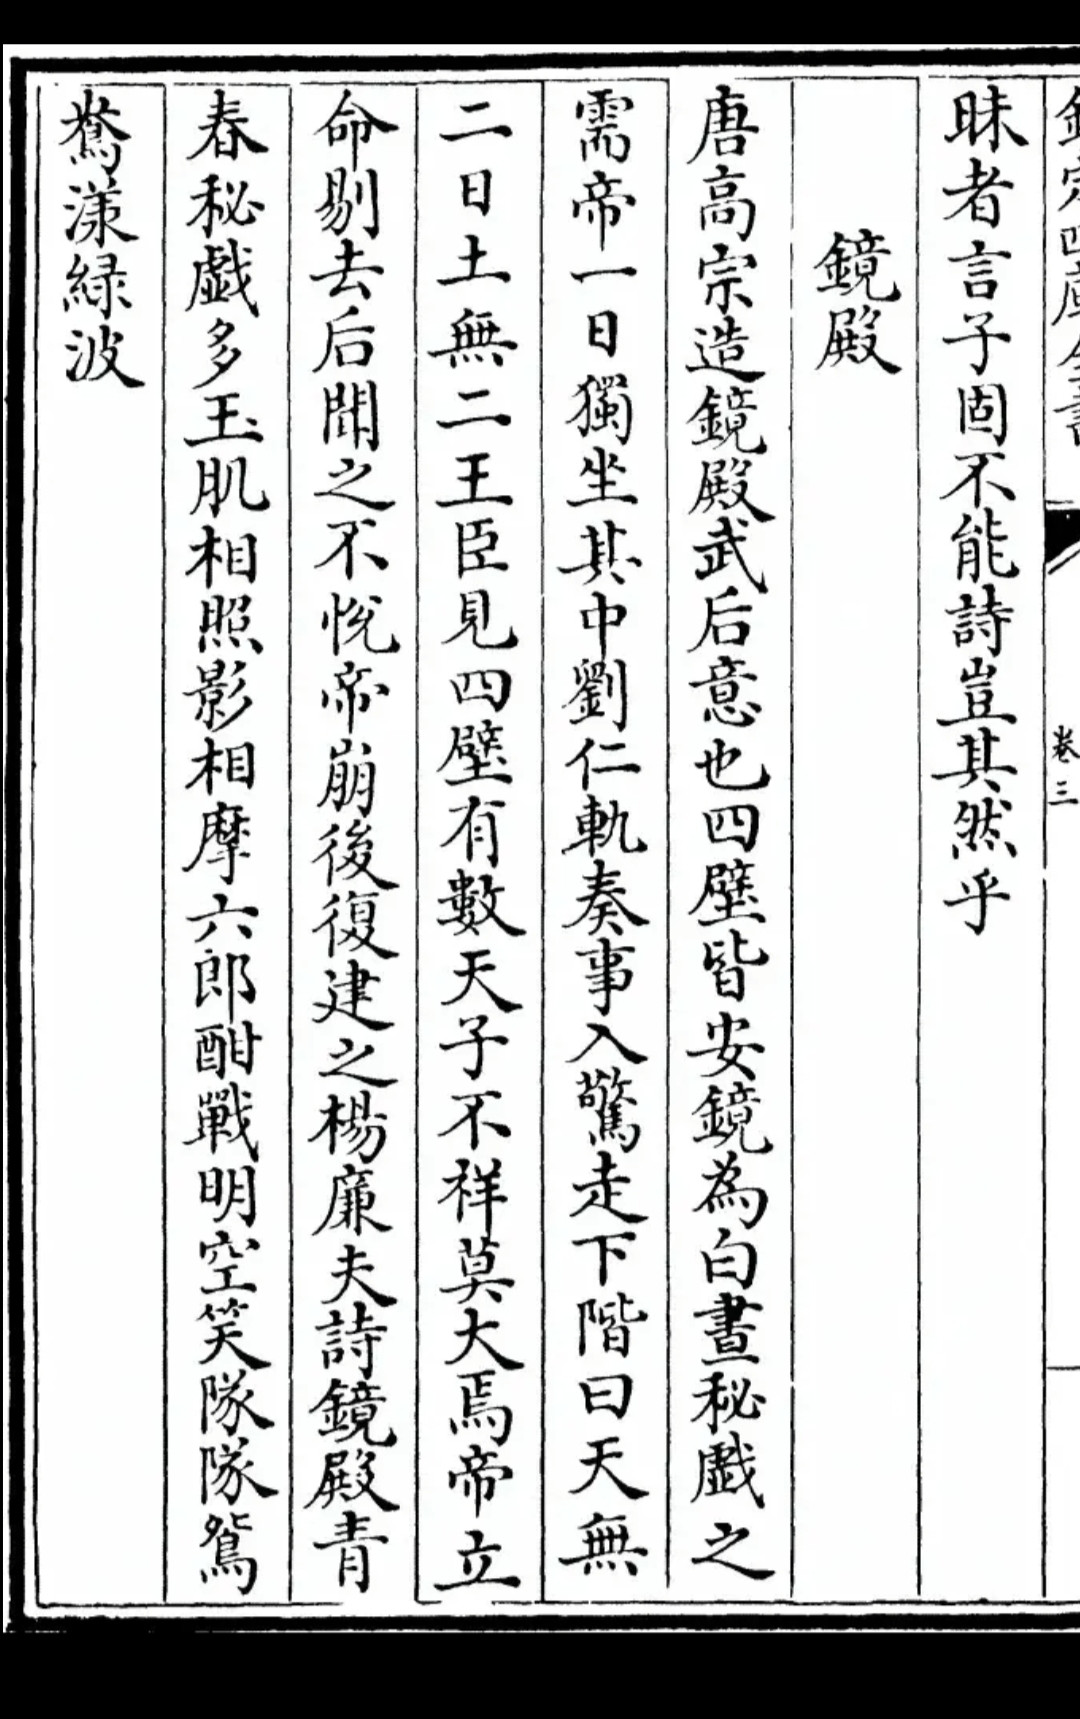 欽定四庫全書
卷三
昧者言子固不能詩豈其然乎
鏡殿
唐高宗造鏡殿武后意也四壁皆安鏡為白晝秘戲之
需帝一日獨坐其中劉仁軌奏事入驚走下階曰天無
二日土無二王臣見四壁有數天子不祥莫大焉帝立
命剔去后聞之不悅帝崩後復建之楊廉夫詩鏡殿青
春秘戲多玉肌相照影相摩六郎酣戰明空笑隊隊鴛
鴦漾緑波